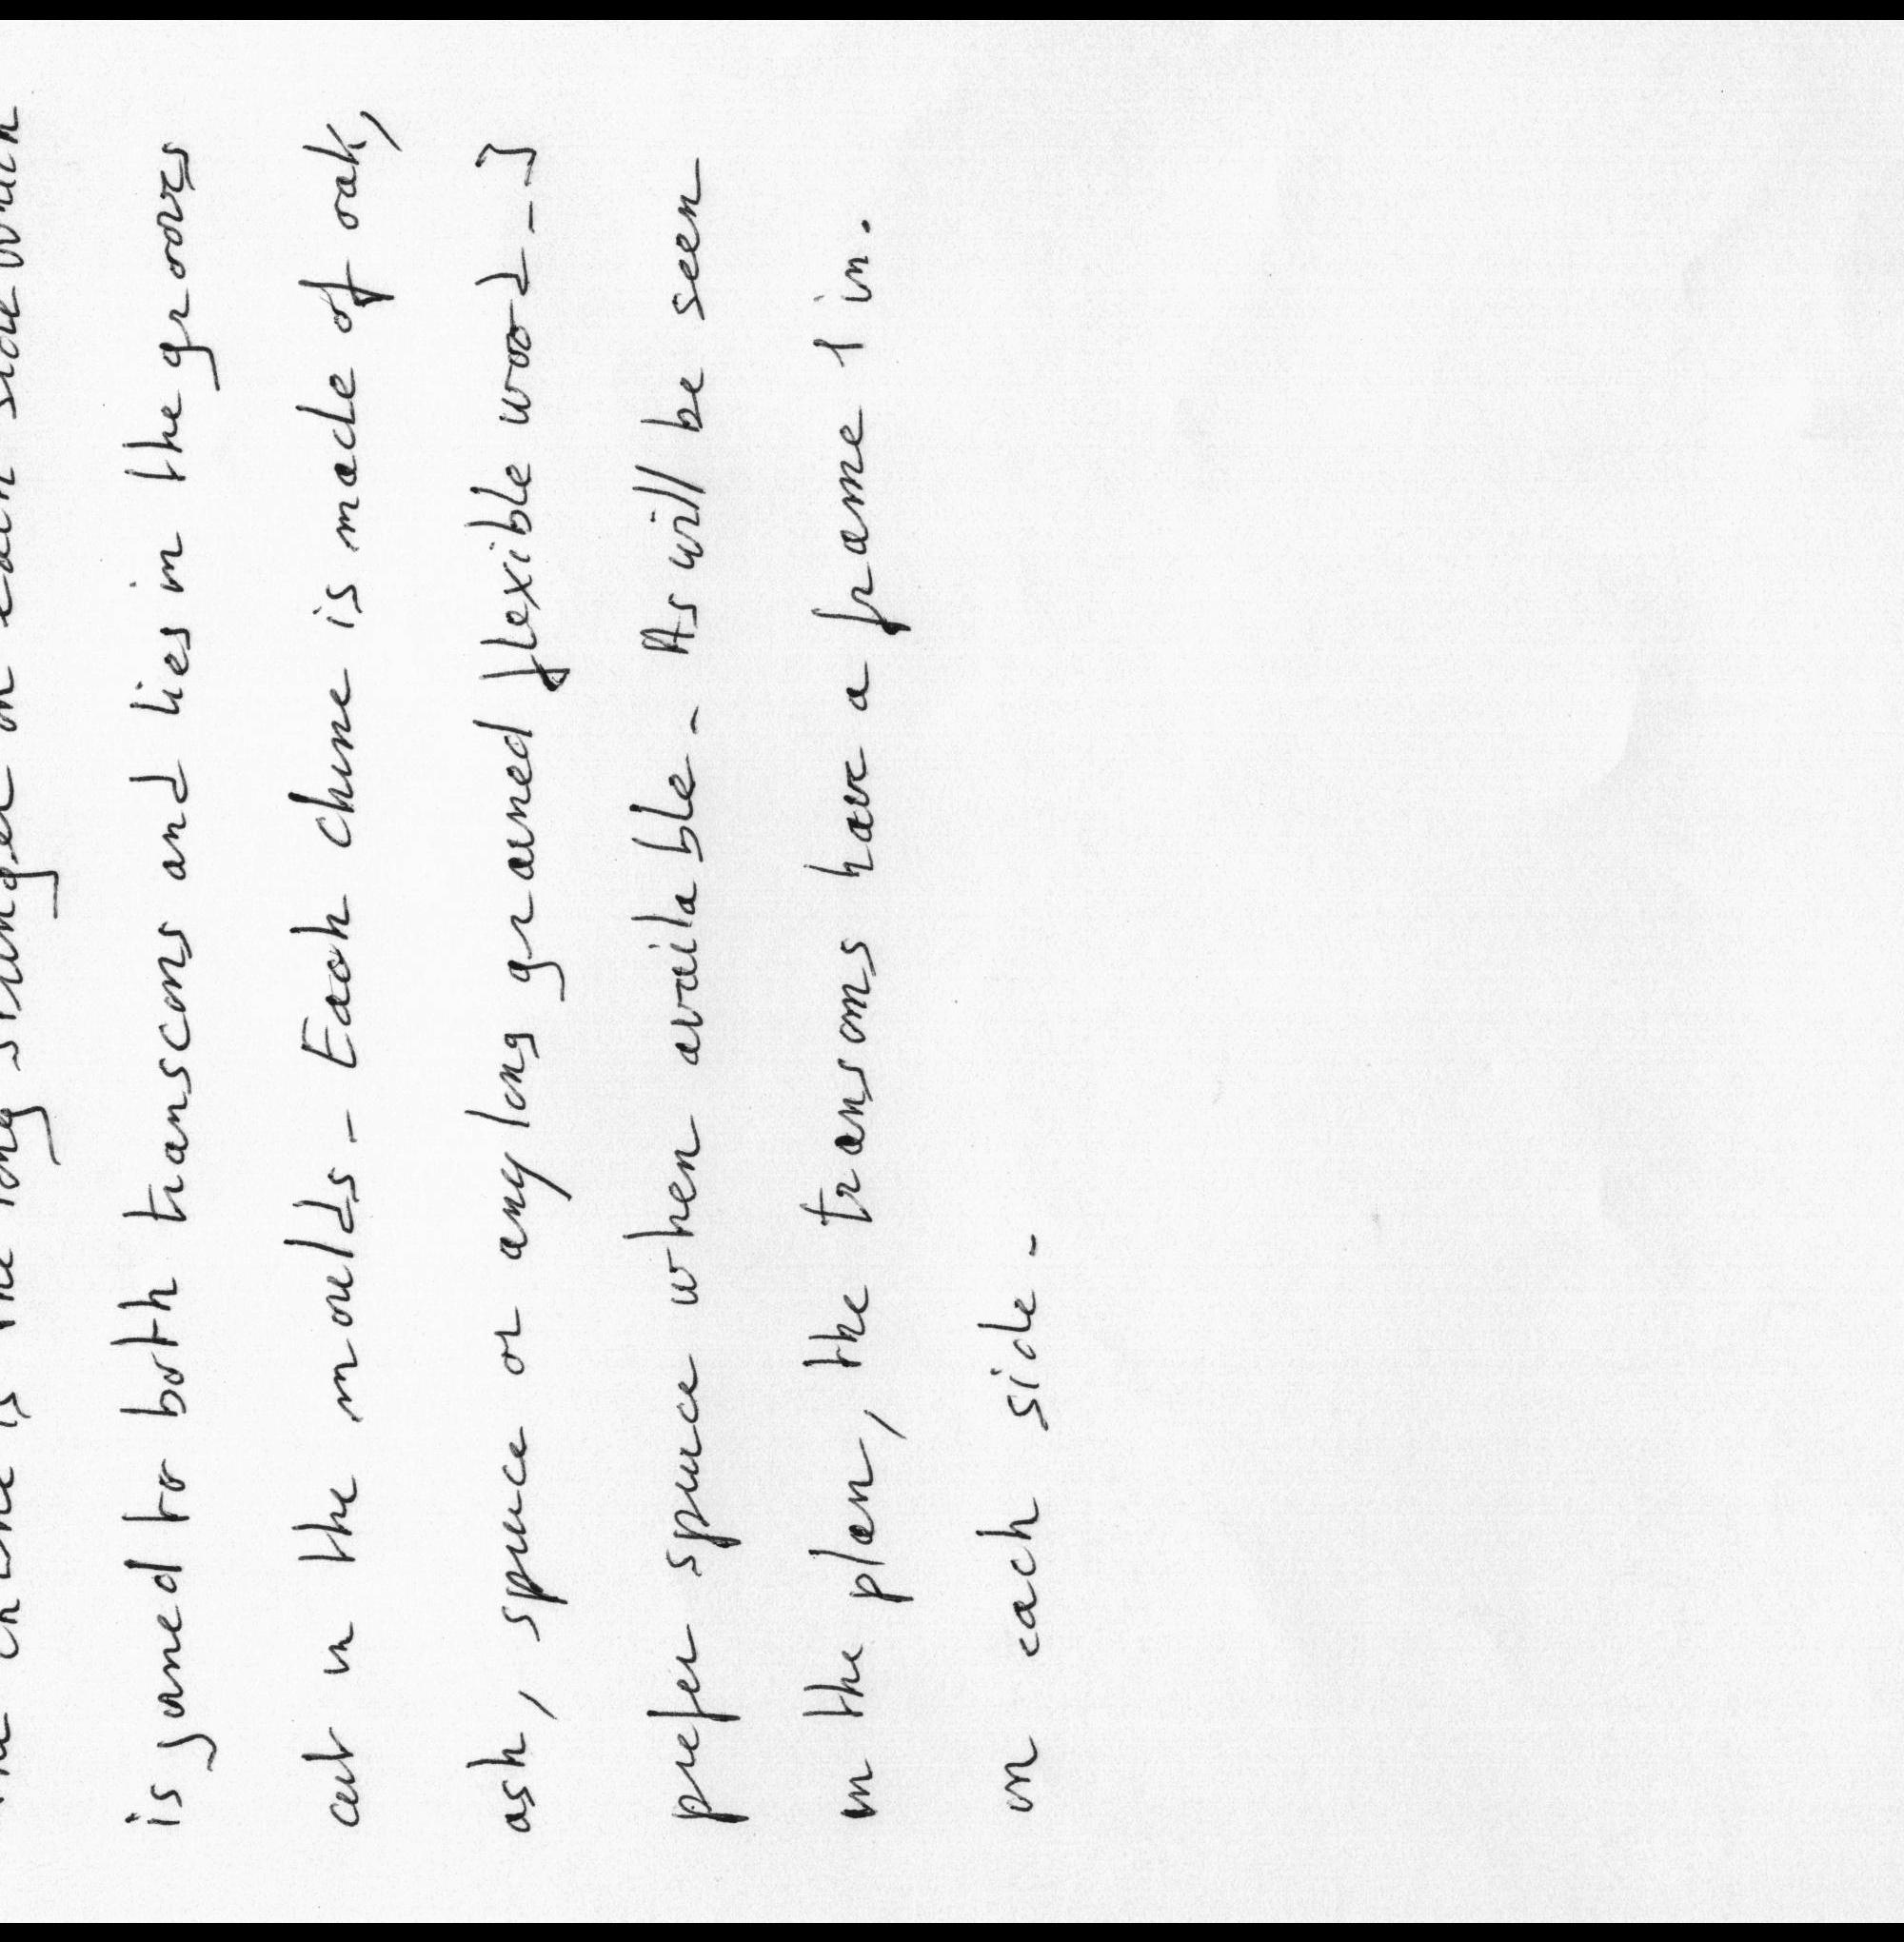 The chine is the long stringer on each side which
is joined to both transoms and lies in the grooves
cut in the moulds. Each chine is made of oak,
ash, spruce or any long grained flexible wood. I
prefer spruce when available. As will be seen
in the plan, the transoms have a frame 1 in.
on each side.